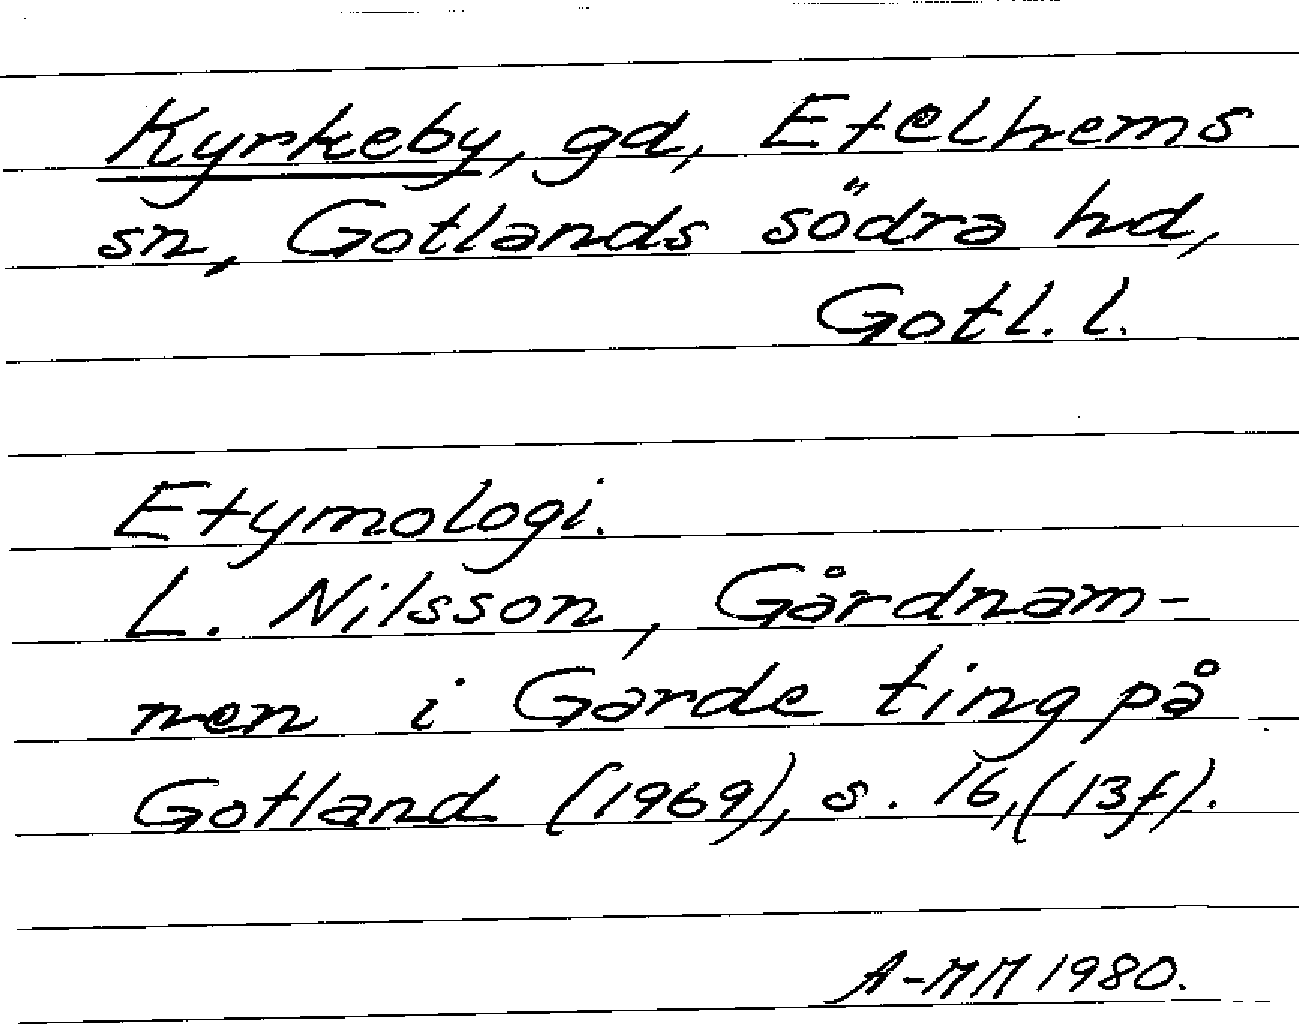 Kyrkeby, gd, Etelhems
sn, Gotlands södra hd,
Gotl. l.
Etymologi.
L. Nilsson, Gårdnam-
nen i Garde ting på
Gotland (1969), s. 16, (13f).
A-MM 1980.